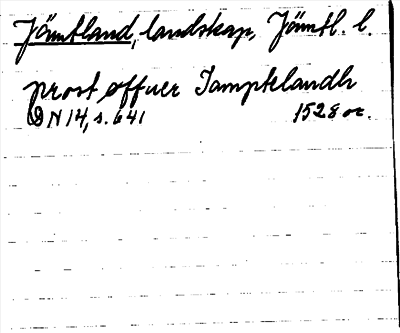 Jämtland, landskap, Jämtl. l.
prost offuer Iamptelandh
DN 14, s. 641 1528 or.